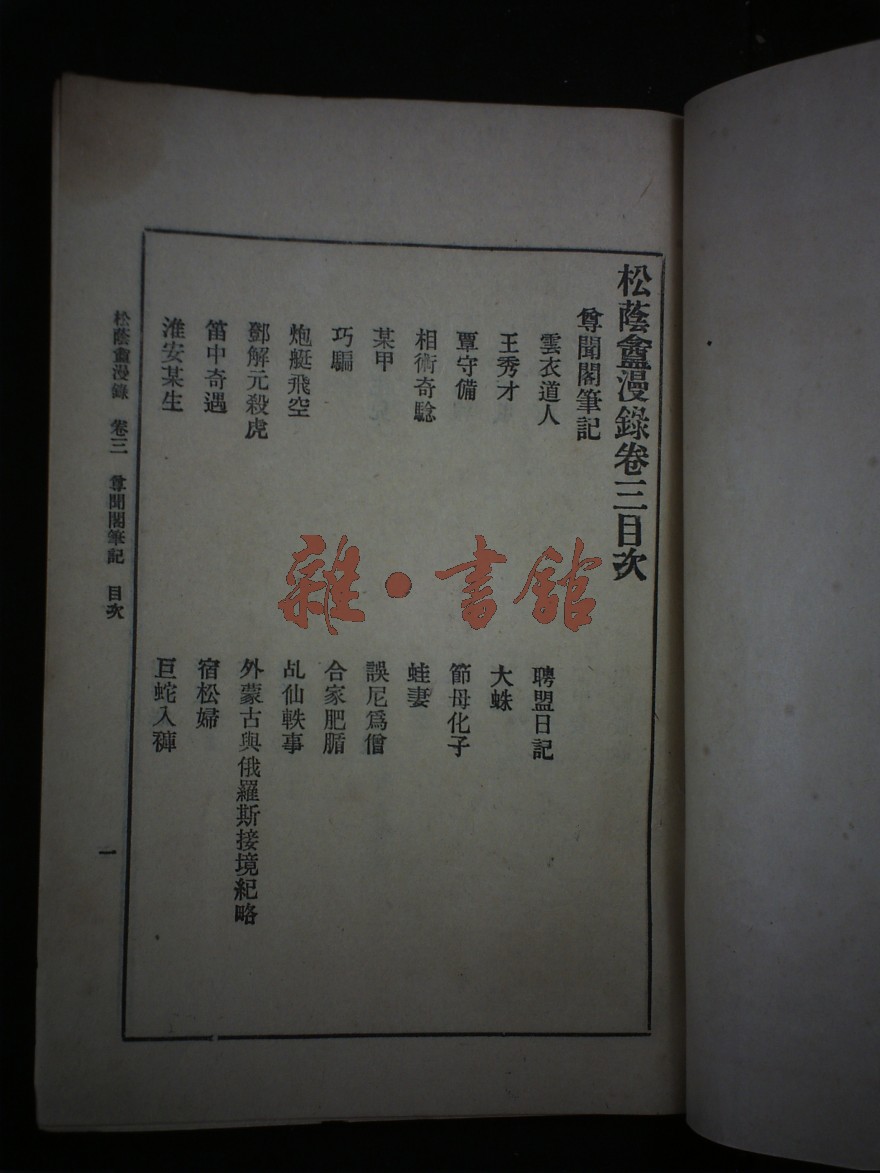 松蔭盦漫錄卷三目次
尊聞閣筆記
雲衣道人
聘盟日記
王秀才
大蛛
覃守備
節母化子
相術奇騐
蛙妻
某甲
誤尼爲僧
巧騙
合家肥腯
炮艇飛空
乩仙軼事
鄧解元殺虎
外蒙古與俄羅斯接境紀略
笛中奇遇
宿松婦
淮安某生
巨蛇入褲
松蔭盦漫錄 卷三 尊聞閣筆記 目次
一
雜·書館